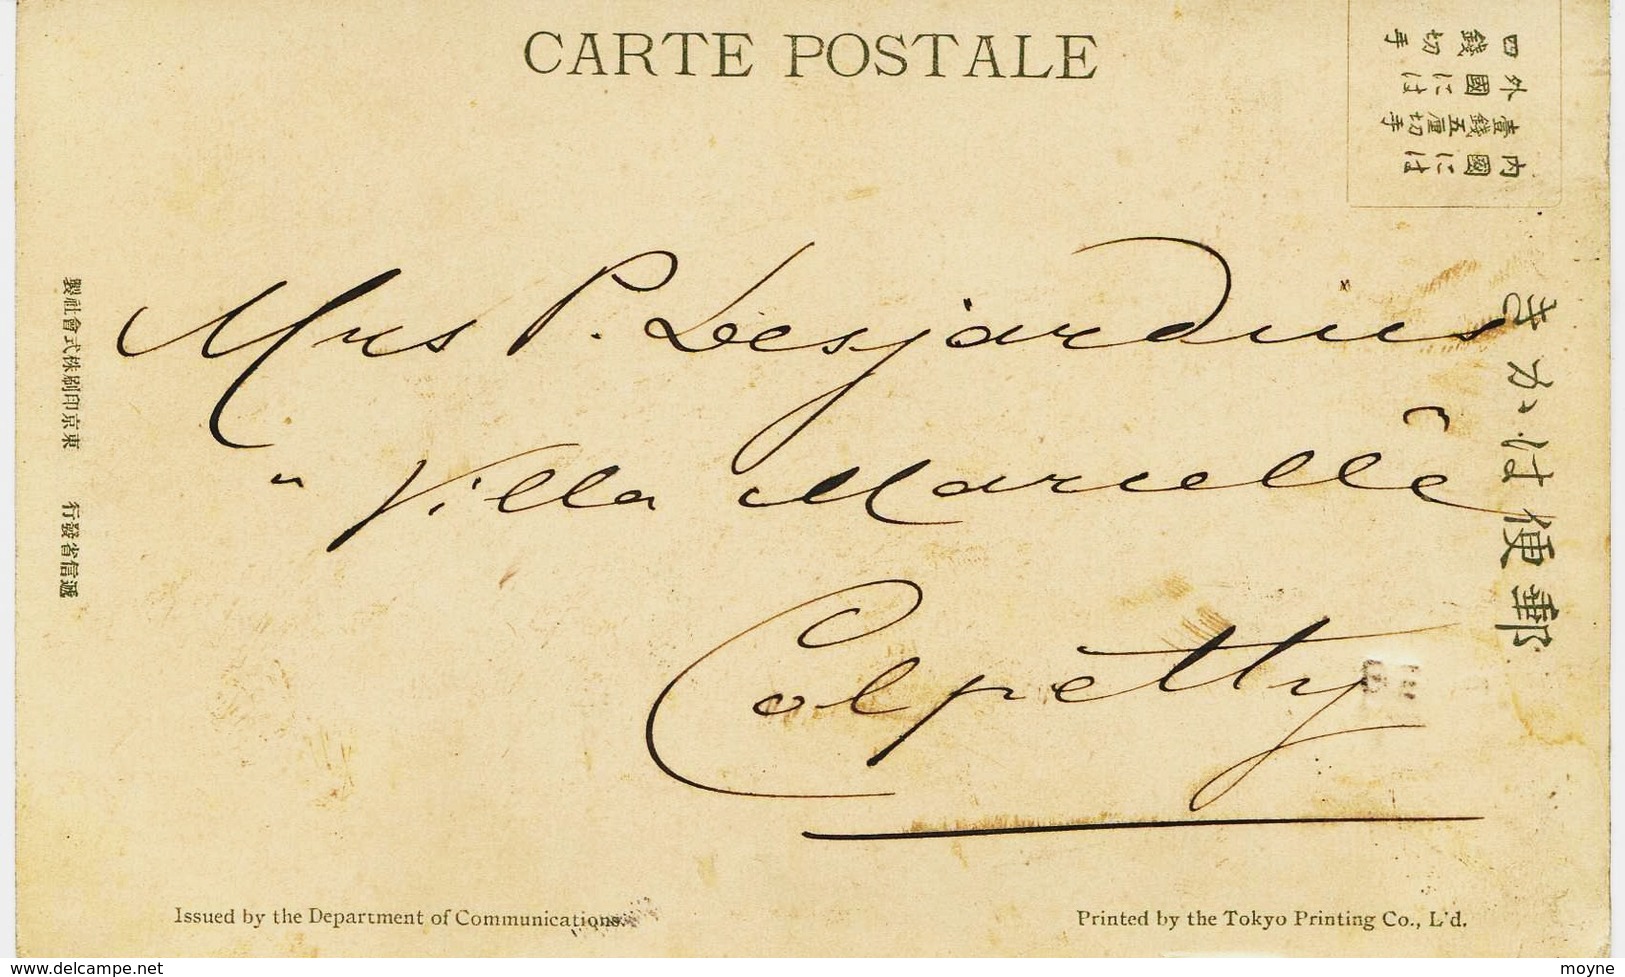 CARTE POSTALE
内國には
壹錢五厘切手
外國には
四錢切手
郵便はかき
Mrs P. Desjardins
" Villa Marielle
Colpetty
東京印刷株式會社製
遞信省發行
Issued by the Department of Communications.
Printed by the Tokyo Printing Co., L'd.
www.delcampe.net
moyne